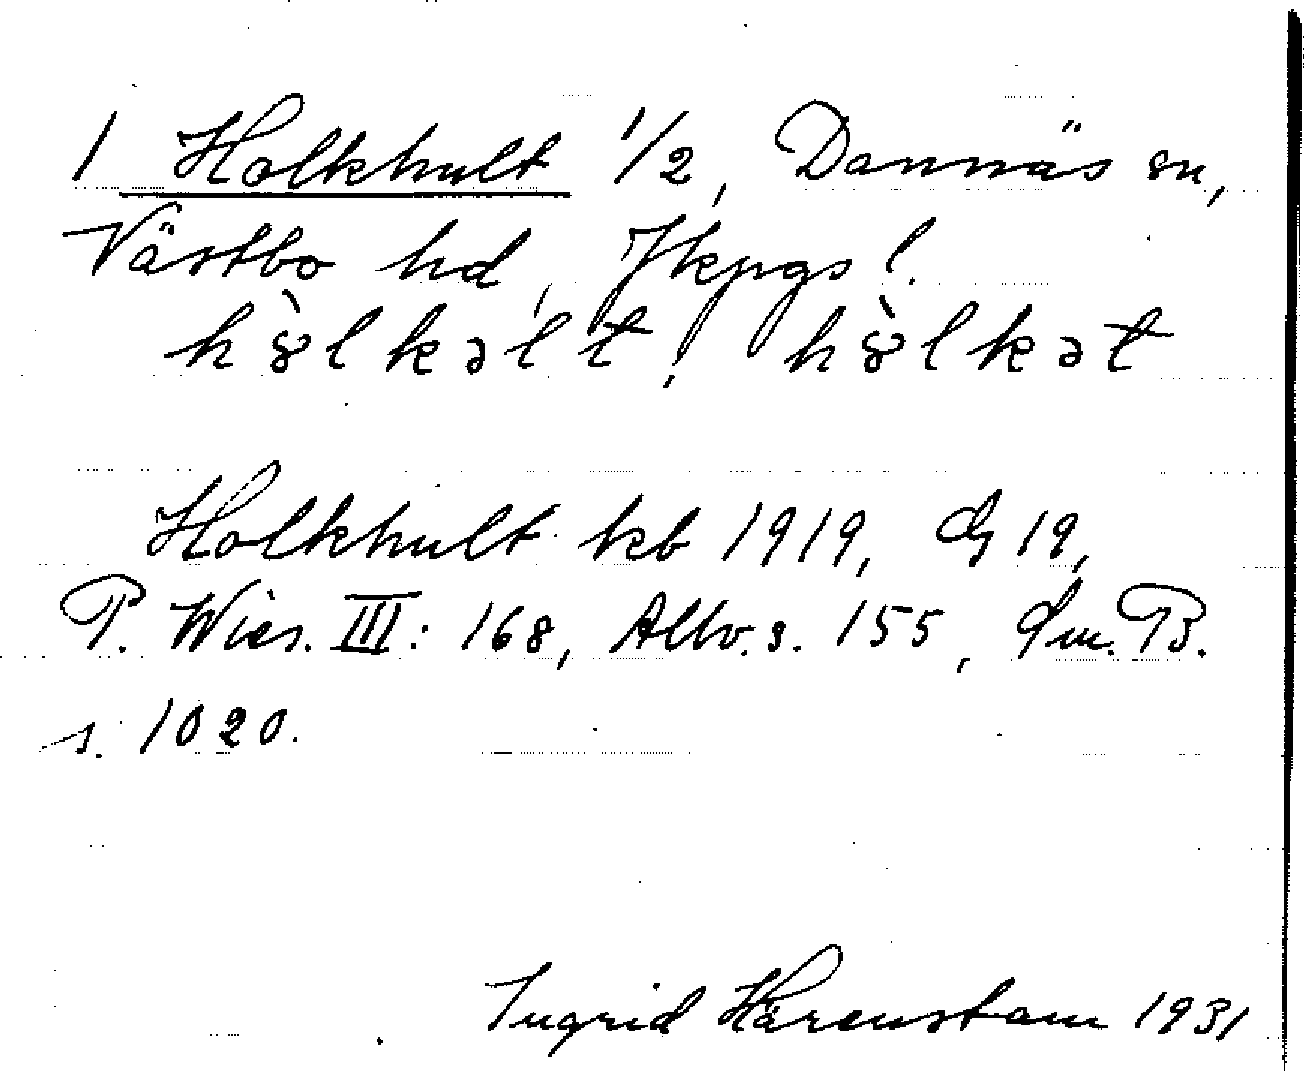 1 Holkhult 1/2, Dannäs sn,
Västbo hd, Jkpgs l.
hȣ̀lkəlt, hȣ̀lkət
Holkhult kb 1919, G 19,
P. Wies. III: 168, Allv. s. 155, Sm. B.
s. 1020.
Ingrid Härenstam 1931